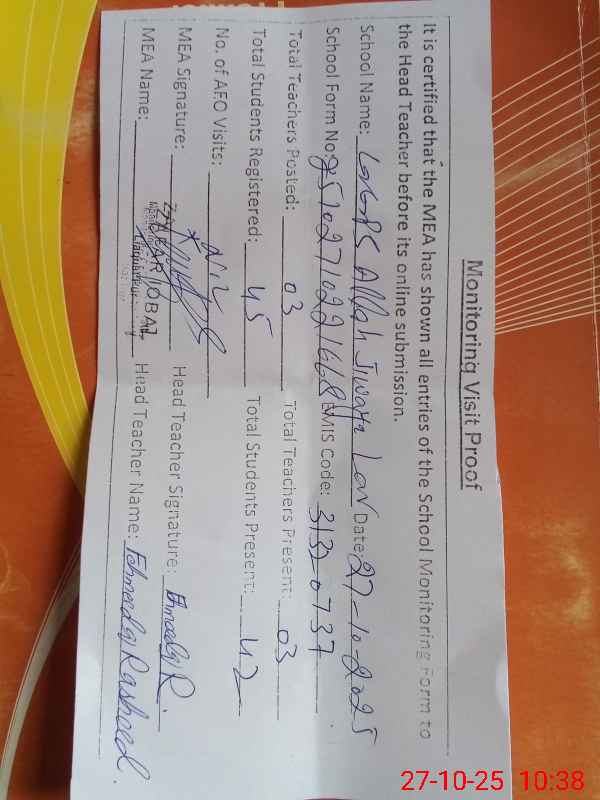 Monitoring Visit Proof
It is certified that the MEA has shown all entries of the School Monitoring Form to
the Head Teacher before its online submission.
School Name: GGPS Allah Jiwaya Lar Date: 27-10-2025
School Form No: 257102710221668 EMIS Code: 31320737
Total Teachers Posted: 03 Total Teachers Present: 03
Total Students Registered: 45 Total Students Present: 42
No. of AEO Visits:
MEA Signature: Head Teacher Signature: Fhmeeda R.
MEA Name: ZAFAR IQBAL Head Teacher Name: Fehmeeda Rasheed.
27-10-25 10:38